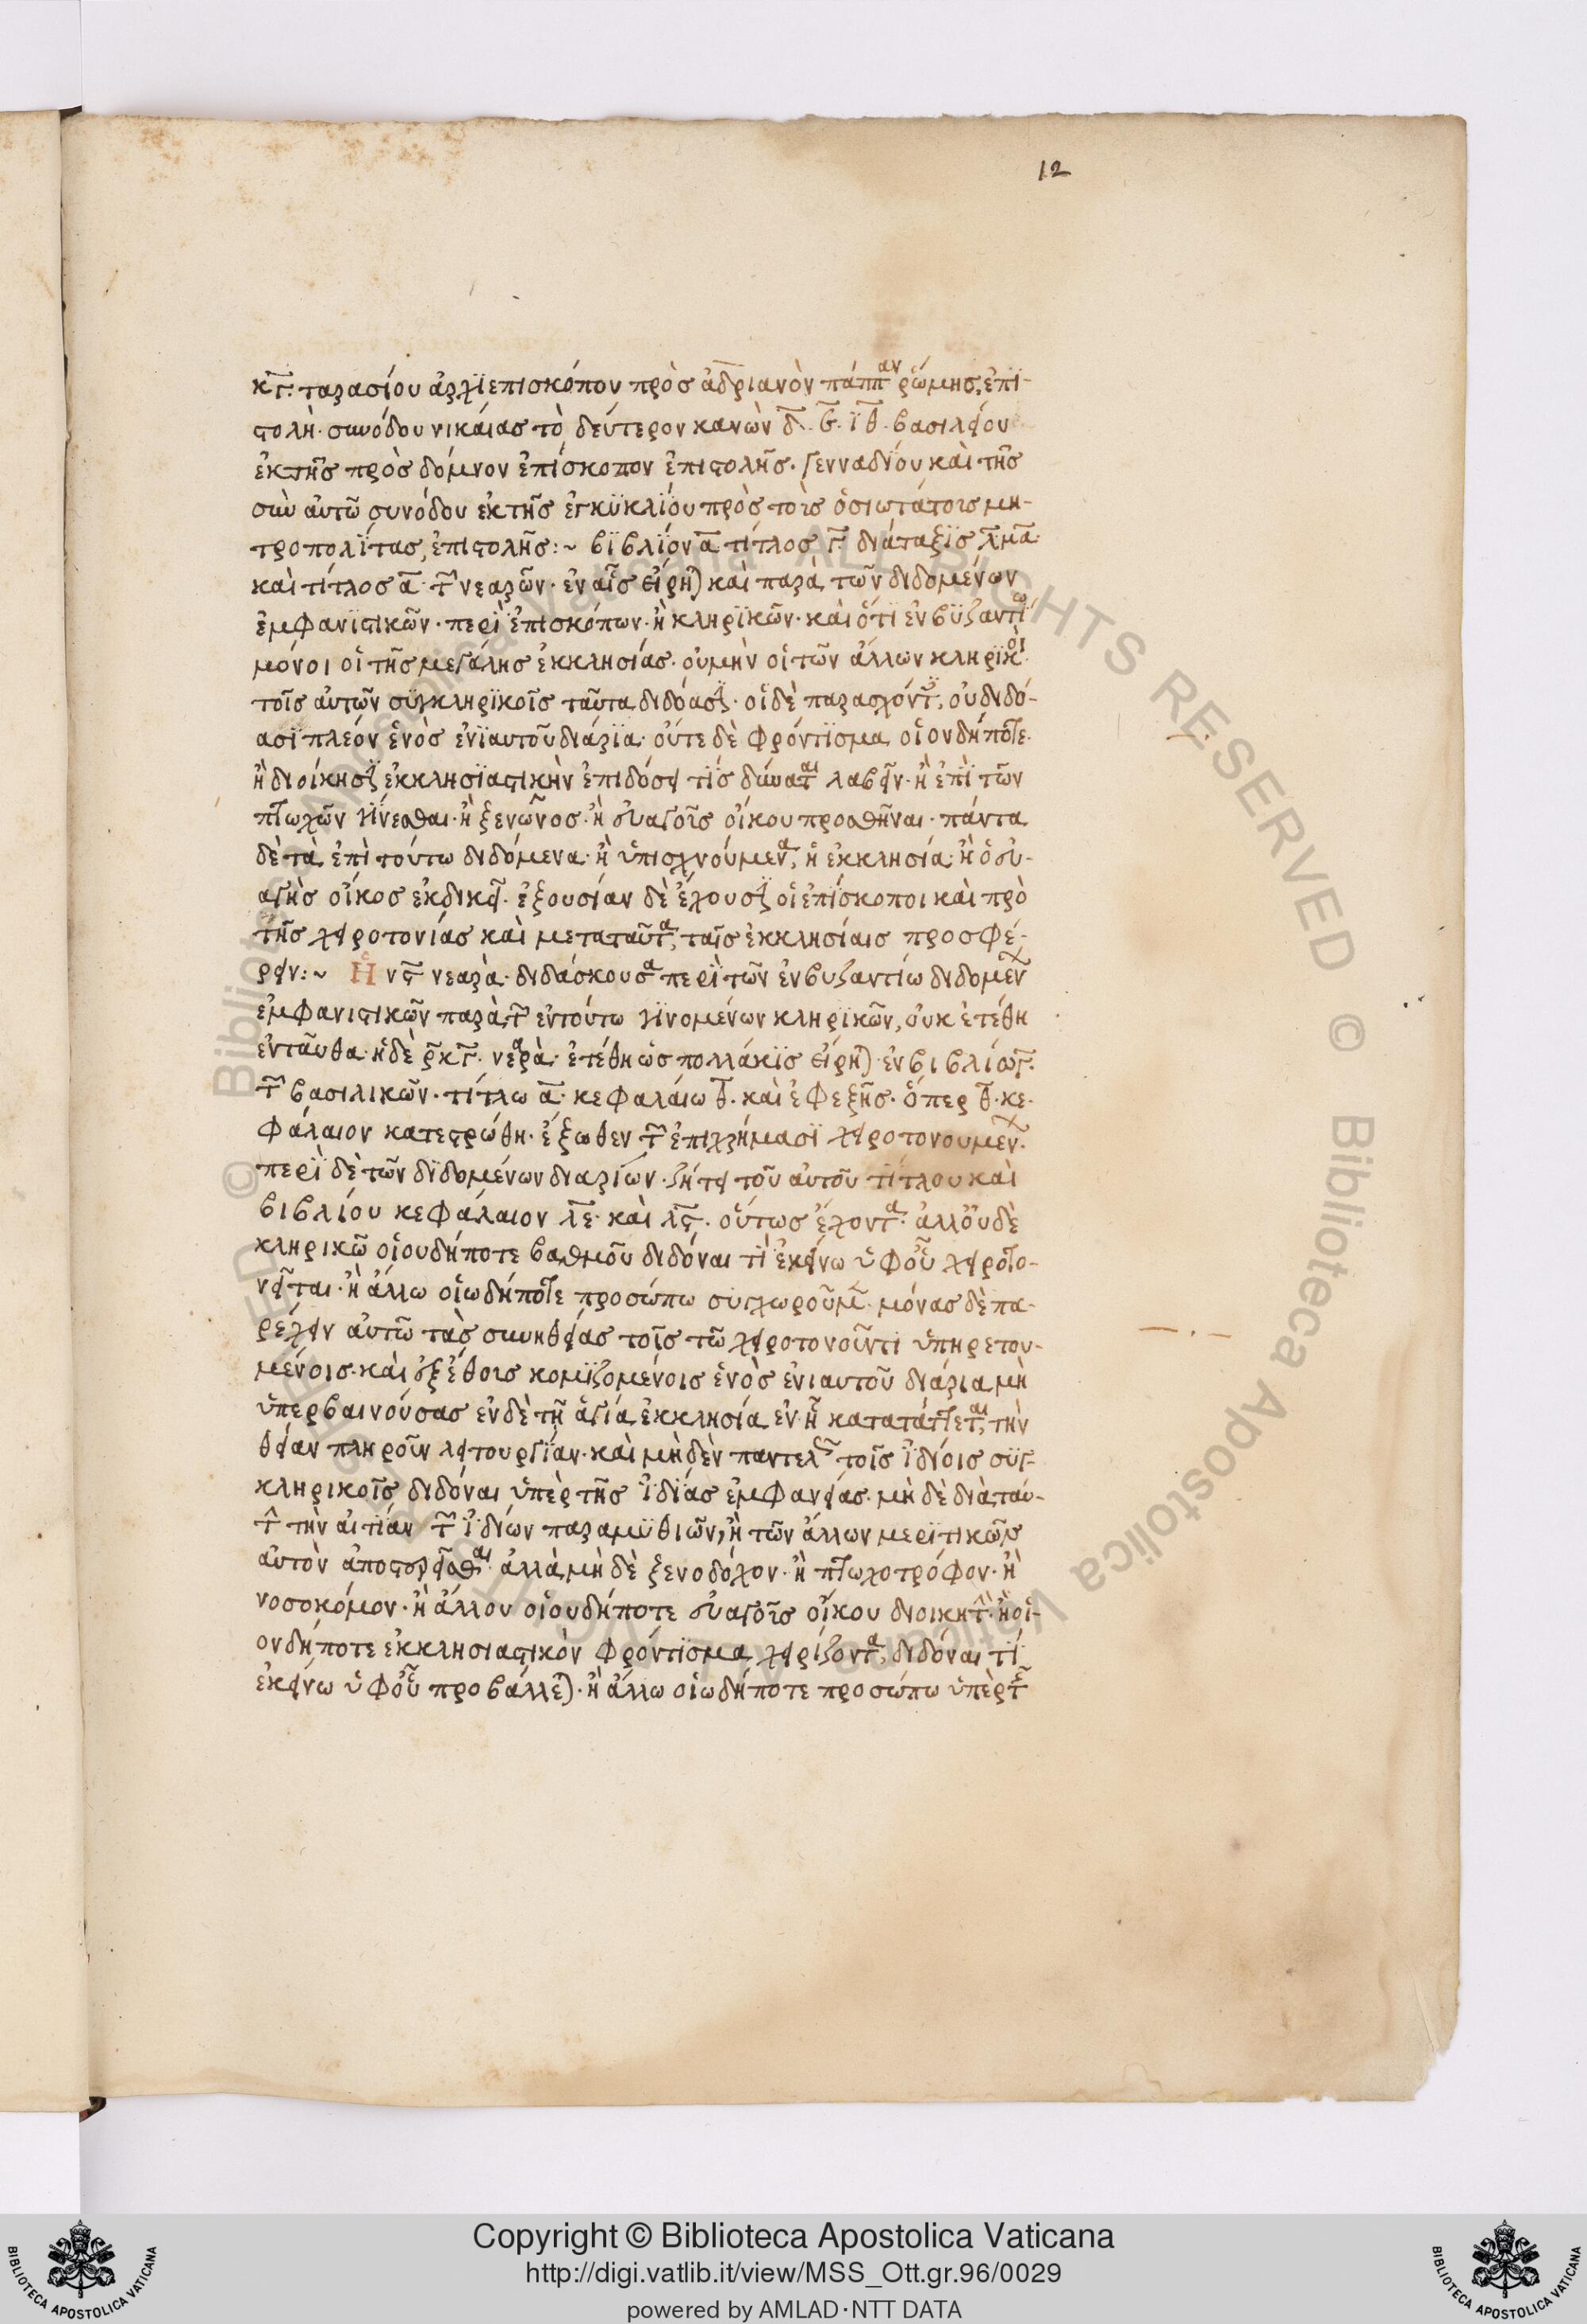 12
κγ. ταρασίου ἀρχϊεπισκόπου πρὸσ ἀδριανὸν πάππαν ῥώμησ, ἐπϊ-
στολὴ· συνόδου νικαίασ τὸ δεύτερον κανὼν δ. ϛ. ϊθ. βασιλείου
ἐκτῆσ πρὸσ δόμνον ἐπίσκοπον ἐπιστολῆσ. γενναδίου καὶ τῆσ
σὺν ἀυτῶ συνόδου ἐκτῆσ ἐγκϋκλΐου πρὸσ τοὶσ ὁσιωτάτοισ μη-
τροπολΐτασ, ἐπιστολῆσ :~ βϊβλΐον α τίτλοσ γ διάταξϊσ λμα
καὶ τίτλοσ α τ νεαρῶν· ἐν αἷσ εἰρη) καὶ παρὰ τῶν διδομένων
ἐμφανϊστικῶν· περὶ ἐπισκόπων· ἢ κληρϊκῶν· καὶ ὅτϊ ἐν βϋζαντίω
μόνοι οἱ τῆσ μεγάλησ ἐκκλησίασ· οὐμὴν οἱ τῶν ἄλλων κληρϊκοὶ.
τοῖσ ἀυτῶν συγκληρϊκοῖσ ταῦτα διδόασϊ· οἱ δὲ παρασχόντ, οὐ διδό-
ασϊ πλεόν ἑνὸσ ἐνϊαυτοῦ διάρϊα· οὔτε δὲ φρόντϊσμα οἱονδήποτε.
ἢ διοίκησϊ ἐκκλησϊαστικὴν ἐπιδόσει τὶσ δύναται λαβεῖν· ἢ ἐπὶ τῶν
πτωχῶν γίνεσθαι· ἢ ξενῶνοσ· ἢ ἐυαγοῖσ οἴκου προσθῆναι· πάντα
δὲ τὰ ἐπὶ τούτω διδόμενα· ἢ ὑπισχνούμενα, ἡ ἐκκλησία· ἢ ὁ ἐυ-
αγὴσ οἶκοσ ἐκδικεῖ. ἐξουσίαν δὲ ἔχουσϊ οἱ ἐπίσκοποι καὶ πρὸ
τῆσ χειροτονίασ καὶ μεταταῦτα, ταῖσ ἐκκλησίαισ προσφέ-
ρειν :~ Ἡ νϛ νεαρὰ· διδάσκουσα περὶ τῶν ἐν βυζαντίω διδομεν
ἐμφανιστικῶν παρὰ τ ἐντούτω γϊνομένων κληρϊκῶν, ὀυκ ἐτέθη
ἐνταῦθα· ἡ δὲ ρκγ. νεαρὰ· ἐτέθη ὡσ πολλάκϊσ εἰρη)· ἐν βιβλίω γ.
τ βασιλικῶν· τίτλω α· κεφαλαίω θ. καὶ ἐφεξῆσ. ὅπερ θ. κε-
φάλαιον κατεστρώθη· ἔξωθεν τ ἐπιχρήμασϊ χειροτονουμεν.
περὶ δὲ τῶν δϊδομένων διαρίων· ζήτει τοῦ ἀυτοῦ τίτλου καὶ
βιβλίου κεφάλαιον λε· καὶ λϛ. οὕτωσ ἔχοντα· ἀλλ' ὀυδὲ
κληρικῶ οἱουδήποτε βαθμοῦ διδόναι τὶ ἐκείνω ὑφ' οὗ χειροτο-
νεῖται· ἢ ἄλλω οἱωδήποτε προσώπω συγχωροῦμ. μόνασ δὲ πα-
ρέχειν ἀυτῶ τὰσ συνηθείασ τοῖσ τῶ χειροτονοῦντι ὑπηρετου-
μένοισ· καὶ ἐξ ἔθουσ κομϊζομένοισ ἑνὸσ ἐνιαυτοῦ διάρια μὴ
ὑπερβαινούσασ ἐν δὲ τῆ ἁγία ἐκκλησία ἐν ἧ κατατάττεται, τὴν
θείαν πληροῦν λειτουργίαν· καὶ μὴδὲν παντελῶσ τοῖσ ἰδίοισ συγ-
κληρικοῖσ διδόναι ὑπὲρ τῆσ ἰδίασ ἐμφανείασ· μὴ δὲ διὰ ταύ-
τ τὴν αἰτίαν τ ἰδίων παραμϋθιῶν, ἢ τῶν ἄλλων μερϊτικῶν
ἀυτὸν ἀποστερεῖσθαι· ἀλλὰ μὴ δὲ ξενοδόχον· ἢ πτωχοτρόφον· ἢ
νοσοκόμον· ἢ ἄλλου οἱουδήποτε ἐυαγοῖσ οἴκου διοικητ· ἢ οἱ-
ονδήποτε ἐκκλησιαστικὸν φρόντϊσμα χειρίζοντα, διδόναι τὶ
ἐκείνω ὑφ' οὗ προβάλλε)· ἢ ἄλλω οἱωδήποτε προσώπω ὑπὲρ τ
Copyright © Biblioteca Apostolica Vaticana
http://digi.vatlib.it/view/MSS_Ott.gr.96/0029
powered by AMLAD·NTT DATA